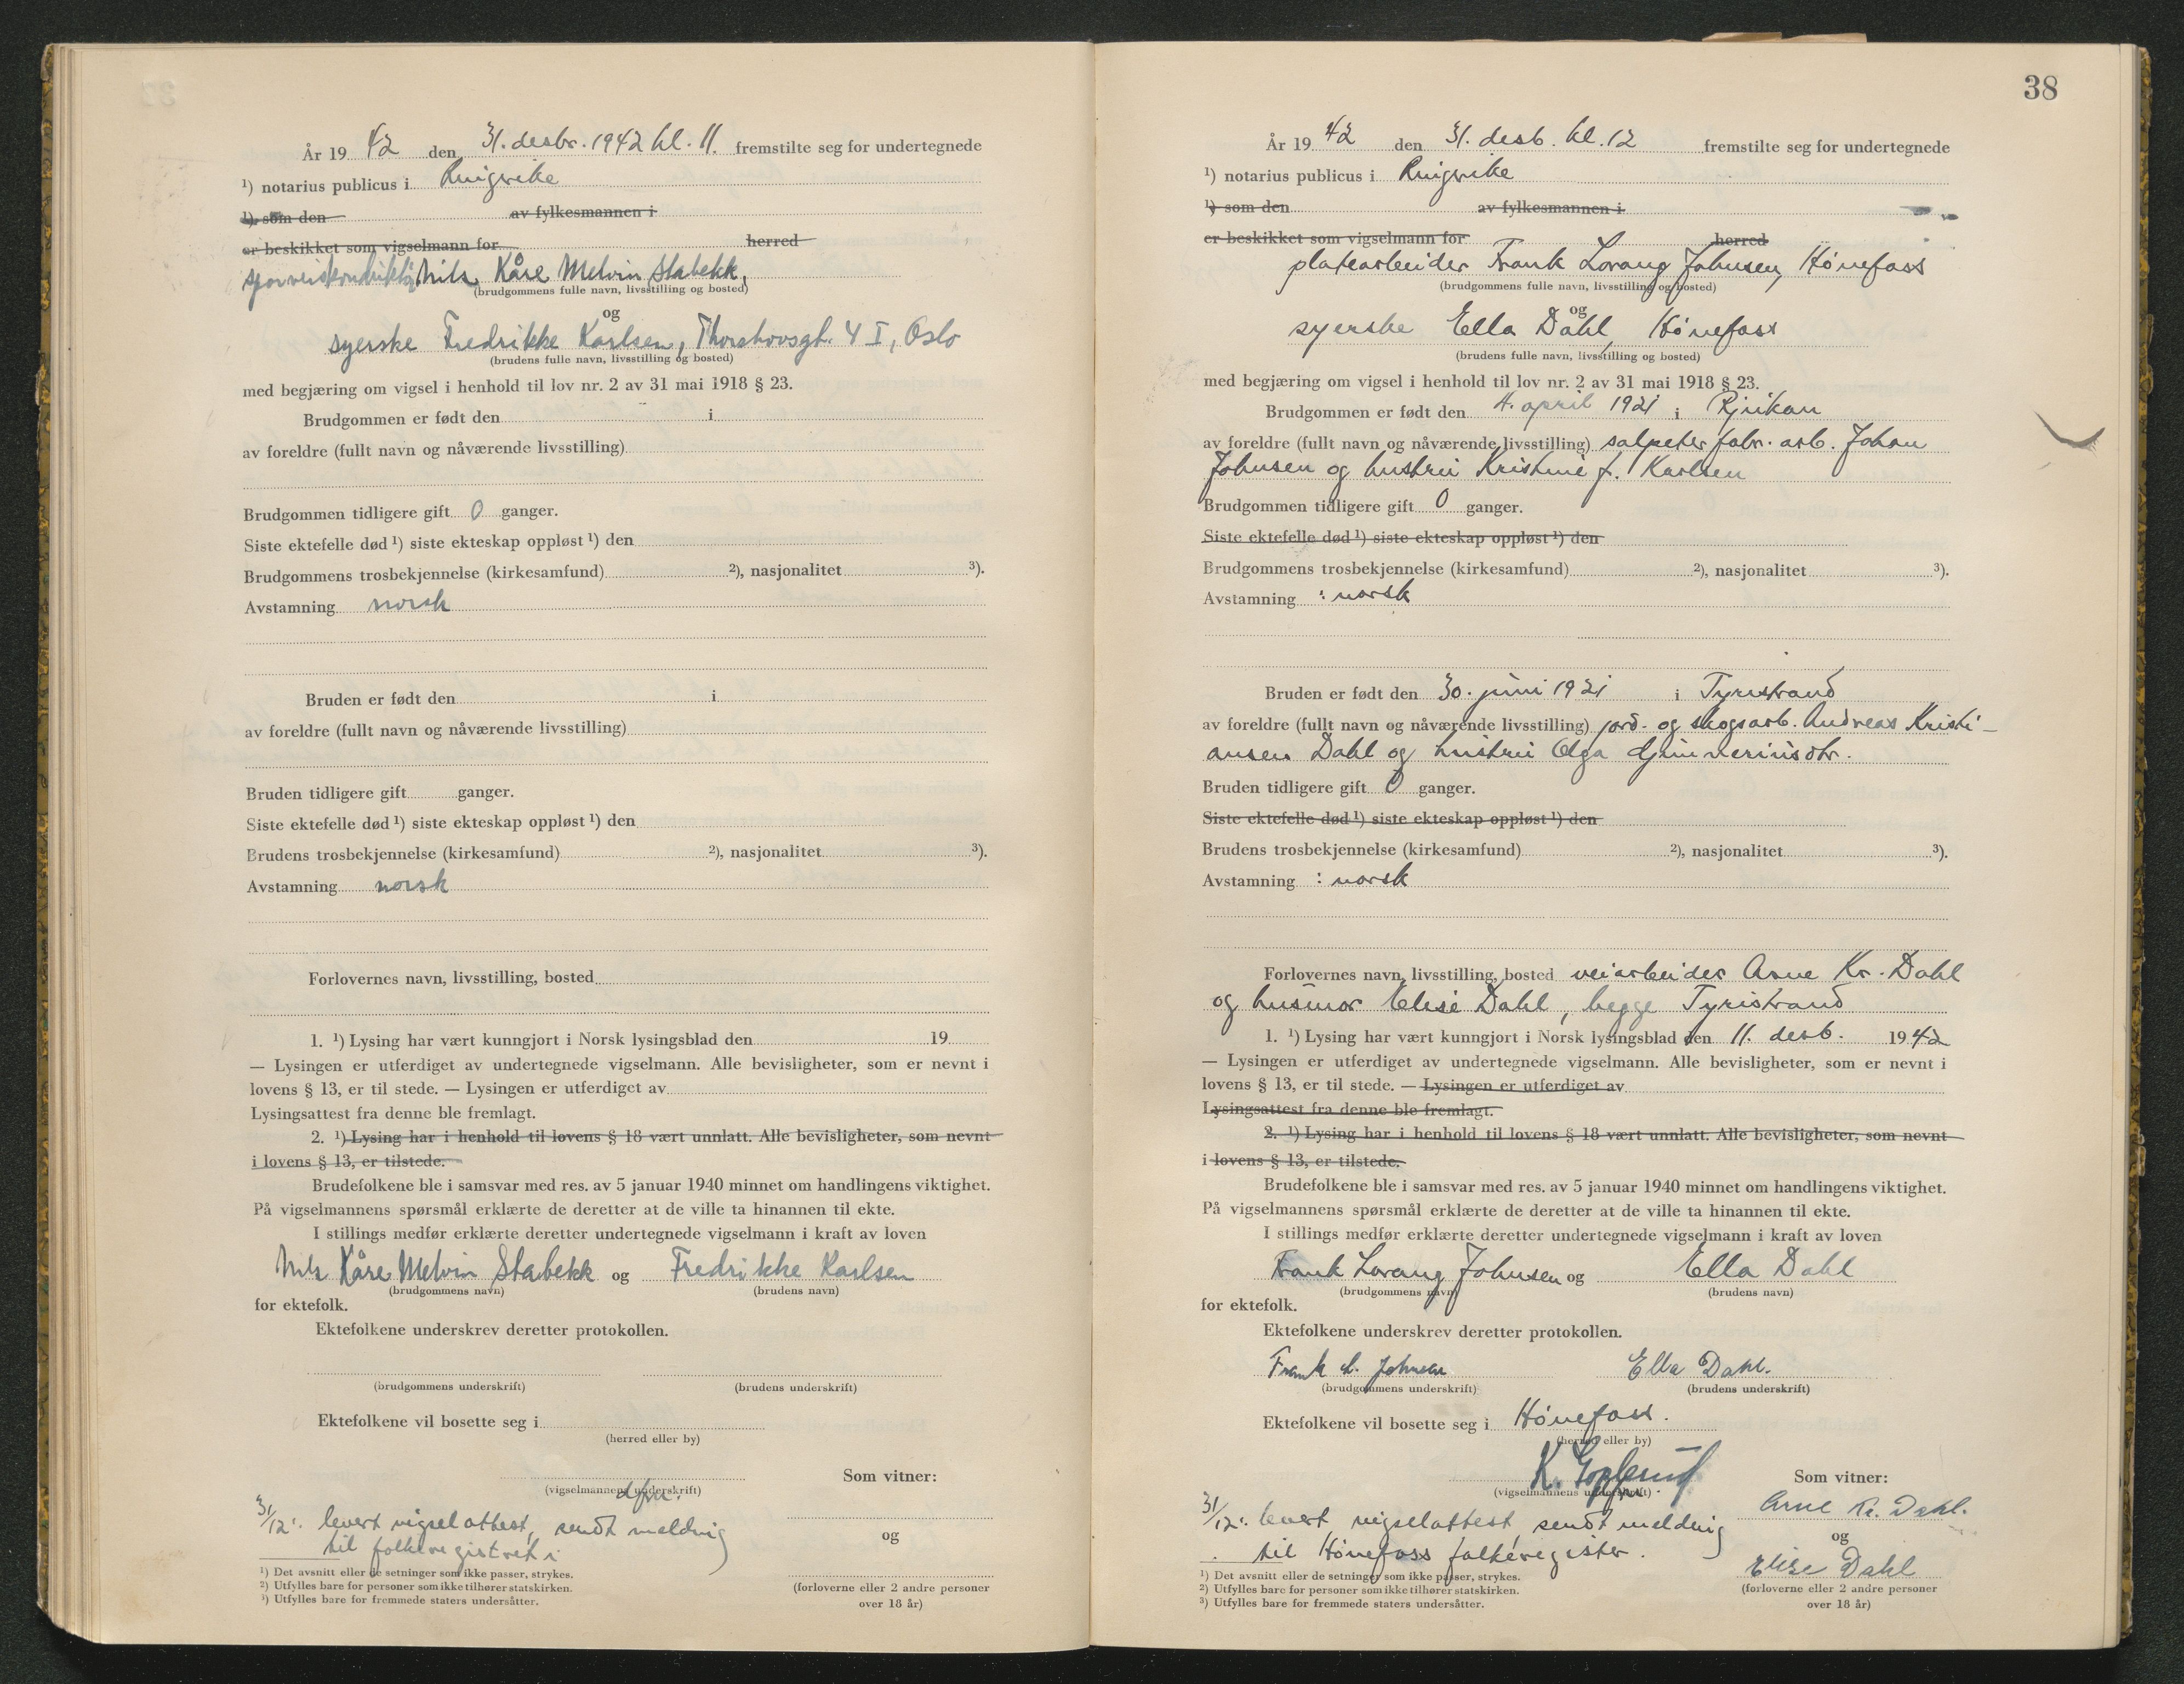 År 19 42 den 31. desbr. 1942 kl. 11. fremstilte seg for undertegnede
¹) notarius publicus i Ringerike
¹) som den av fylkesmannen i
er beskikket som vigselmann for herred
Nils Kåre Melvin Stabekk,
(brudgommens fulle navn, livsstilling og bosted)
og
syerske Fredrikke Karlsen, Thorshovsgt. 4 I, Oslo
(brudens fulle navn, livsstilling og bosted)
med begjæring om vigsel i henhold til lov nr. 2 av 31 mai 1918 § 23.
Brudgommen er født den i
av foreldre (fullt navn og nåværende livsstilling)
Brudgommen tidligere gift 0 ganger.
Siste ektefelle død ¹) siste ekteskap oppløst ¹) den
Brudgommens trosbekjennelse (kirkesamfund) ²), nasjonalitet ³).
Avstamning norsk
Bruden er født den i
av foreldre (fullt navn og nåværende livsstilling)
Bruden tidligere gift ganger.
Siste ektefelle død ¹) siste ekteskap oppløst ¹) den
Brudens trosbekjennelse (kirkesamfund) ²), nasjonalitet ³).
Avstamning norsk
Forlovernes navn, livsstilling, bosted
1. ¹) Lysing har vært kunngjort i Norsk lysingsblad den 19
— Lysingen er utferdiget av undertegnede vigselmann. Alle bevisligheter, som er nevnt i
lovens § 13, er til stede. — Lysingen er utferdiget av
Lysingsattest fra denne ble fremlagt.
2. ¹) Lysing har i henhold til lovens § 18 vært unnlatt. Alle bevisligheter, som nevnt
i lovens § 13, er tilstede.
Brudefolkene ble i samsvar med res. av 5 januar 1940 minnet om handlingens viktighet.
På vigselmannens spørsmål erklærte de deretter at de ville ta hinannen til ekte.
I stillings medfør erklærte deretter undertegnede vigselmann i kraft av loven
Nils Kåre Melvin Stabekk og Fredrikke Karlsen
(brudgommens navn) (brudens navn)
for ektefolk.
Ektefolkene underskrev deretter protokollen.
(brudgommens underskrift) (brudens underskrift)
Ektefolkene vil bosette seg i
(herred eller by)
Som vitner:
(vigselmannens underskrift)
dfm.
31/12: levert vigselattest, sendt melding
til folkeregistret i
og
¹) Det avsnitt eller de setninger som ikke passer, strykes.
²) Utfylles bare for personer som ikke tilhører statskirken.
³) Utfylles bare for fremmede staters undersåtter.
(forloverne eller 2 andre personer
over 18 år)
38
År 19 42 den 31. desb. kl. 12 fremstilte seg for undertegnede
¹) notarius publicus i Ringerike
¹) som den av fylkesmannen i
er beskikket som vigselmann for herred
platearbeider Frank Lorang Johnsen, Hønefoss
(brudgommens fulle navn, livsstilling og bosted)
og
syerske Ella Dahl, Hønefoss
(brudens fulle navn, livsstilling og bosted)
med begjæring om vigsel i henhold til lov nr. 2 av 31 mai 1918 § 23.
Brudgommen er født den 4. april 1921 i Rjukan
av foreldre (fullt navn og nåværende livsstilling) salpeter fabr. arb. Johan
Johnsen og hustru Kristine f. Karlsen
Brudgommen tidligere gift 0 ganger.
Siste ektefelle død ¹) siste ekteskap oppløst ¹) den
Brudgommens trosbekjennelse (kirkesamfund) ²), nasjonalitet ³).
Avstamning : norsk
Bruden er født den 30. juni 1921 i Tyristrand
av foreldre (fullt navn og nåværende livsstilling) jord- og skogsarb. Andreas Kristi-
ansen Dahl og hustru Olga
Bruden tidligere gift 0 ganger.
Siste ektefelle død ¹) siste ekteskap oppløst ¹) den
Brudens trosbekjennelse (kirkesamfund) ²), nasjonalitet ³).
Avstamning : norsk
Forlovernes navn, livsstilling, bosted veiarbeider Arne Kr. Dahl
og husmor Elise Dahl, begge Tyristrand
1. ¹) Lysing har vært kunngjort i Norsk lysingsblad den 11. desb. 1942
— Lysingen er utferdiget av undertegnede vigselmann. Alle bevisligheter, som er nevnt i
lovens § 13, er til stede. — Lysingen er utferdiget av
Lysingsattest fra denne ble fremlagt.
2. ¹) Lysing har i henhold til lovens § 18 vært unnlatt. Alle bevisligheter, som nevnt
i lovens § 13, er tilstede.
Brudefolkene ble i samsvar med res. av 5 januar 1940 minnet om handlingens viktighet.
På vigselmannens spørsmål erklærte de deretter at de ville ta hinannen til ekte.
I stillings medfør erklærte deretter undertegnede vigselmann i kraft av loven
Frank Lorang Johnsen og Ella Dahl
(brudgommens navn) (brudens navn)
for ektefolk.
Ektefolkene underskrev deretter protokollen.
Frank L. Johnsen Ella Dahl.
(brudgommens underskrift) (brudens underskrift)
Ektefolkene vil bosette seg i Hønefoss.
(herred eller by)
K.
Som vitner:
(vigselmannens underskrift)
Arne Kr. Dahl.
31/12: levert vigselattest, sendt melding
til Hønefoss folkeregister.
og
Elise Dahl
¹) Det avsnitt eller de setninger som ikke passer, strykes.
²) Utfylles bare for personer som ikke tilhører statskirken.
³) Utfylles bare for fremmede staters undersåtter.
(forloverne eller 2 andre personer
over 18 år)